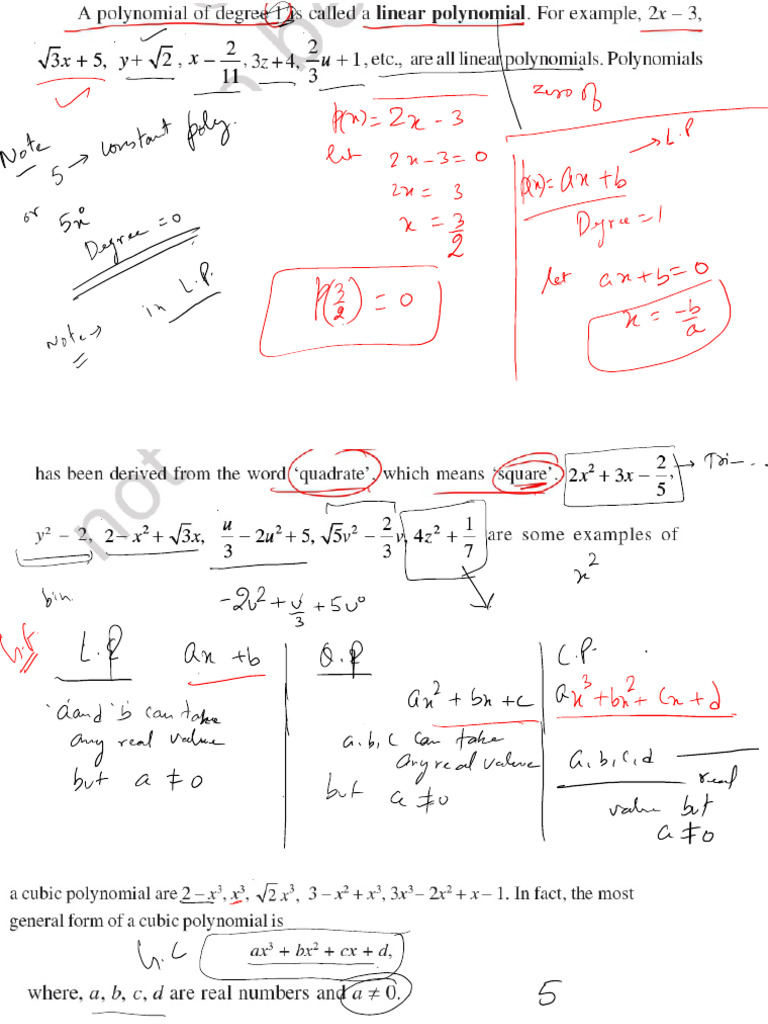 A polynomial of degree 1 is called a linear polynomial. For example, 2x – 3,
√3x + 5, y + √2, x – 2/11, 3z + 4, 2/3 u + 1, etc., are all linear polynomials. Polynomials
zero of
Note
5 → constant poly.
or 5x⁰
Degree = 0
Note → in L.P.
p(x) = 2x - 3
let 2x - 3 = 0
2x = 3
x = 3/2
p(3/2) = 0
→ L.P
p(x) = ax + b
Degree = 1
let ax + b = 0
x = -b/a
not
has been derived from the word ‘quadrate’, which means ‘square’. 2x² + 3x – 2/5, → Tri- ...
y² – 2, 2 – x² + √3x, u/3 – 2u² + 5, √5v² – 2/3 v, 4z² + 1/7 are some examples of
x²
bin
-2u² + u/3 + 5u⁰
G.F
L.P ax + b
'a' and 'b' can take
any real value
but a ≠ 0
Q.P
ax² + bx + c
a, b, c can take
any real value
but a ≠ 0
C.P.
ax³ + bx² + cx + d
a, b, c, d
real
value but
a ≠ 0
a cubic polynomial are 2 – x³, x³, √2 x³, 3 – x² + x³, 3x³ – 2x² + x – 1. In fact, the most
general form of a cubic polynomial is
ax³ + bx² + cx + d,
where, a, b, c, d are real numbers and a ≠ 0.
5